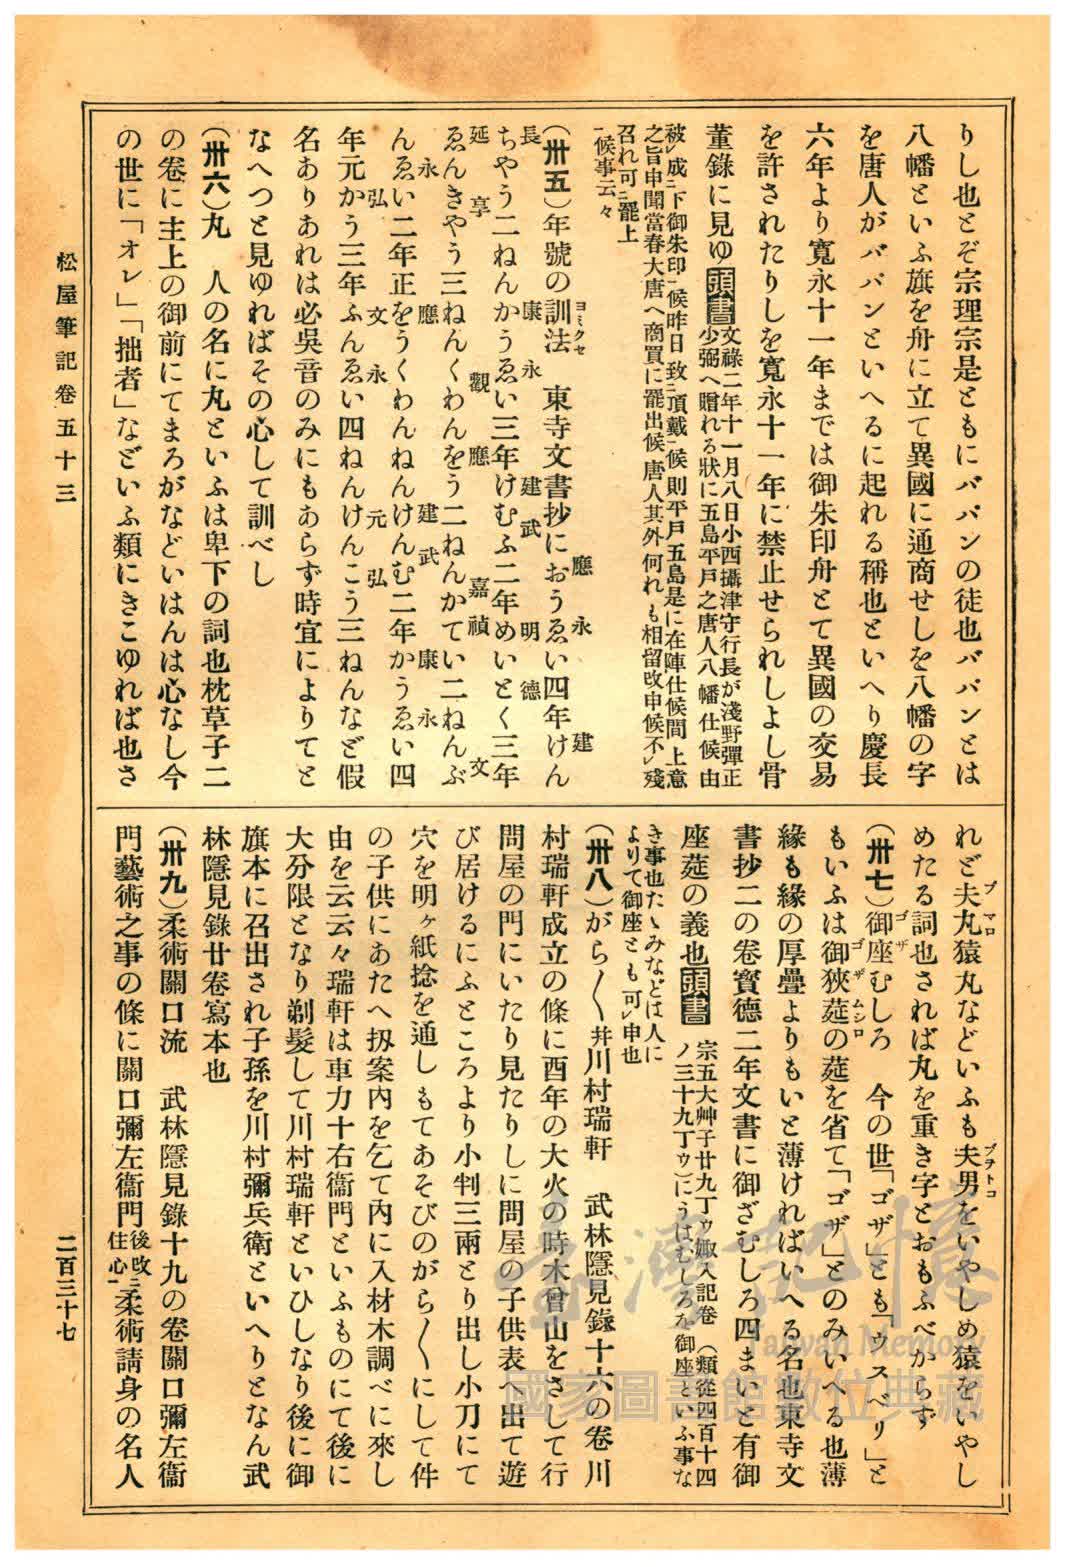 りし也とぞ宗理宗是ともにババンの徒也ババンとは
八幡といふ旗を舟に立て異國に通商せしを八幡の字
を唐人がババンといへるに起れる稱也といへり慶長
六年より寬永十一年までは御朱印舟とて異國の交易
を許されたりしを寬永十一年に禁止せられしよし骨
董錄に見ゆ頭書文祿二年十一月八日小西攝津守行長が淺野彈正
少弼へ贈れる狀に五島平戸之唐人八幡仕候由
被レ成ニ下御朱印一候昨日致ニ頂戴一候則平戸五島是に在陣仕候間上意
之旨申聞當春大唐へ商買に罷出候唐人其外何れも相留改申候不レ殘
召れ可ニ罷上
一候事云々
(卅五)年號の訓法ヨミクセ 東寺文書抄におうゑい應永四年けん建
長ちやう二ねんかうゑい康永三年けむふ建武二年めいとく明德三年
延ゑんきやう享三ねんくわんをう觀應二ねんかてい嘉禎二ねんぶ文
んゑい永二年正をうくわん應ねんけんむ建武二年かうゑい康永四
年元かう弘三年ふんゑい文永四ねんけんこう元弘三ねんなど假
名ありあれは必吳音のみにもあらず時宜によりてと
なへつと見ゆればその心して訓べし
(卅六)丸 人の名に丸といふは卑下の詞也枕草子二
の卷に主上の御前にてまろがなどいはんは心なし今
の世に「オレ」「拙者」などいふ類にきこゆれば也さ
れど夫丸ブマロ猿丸などいふも夫男ブヲトコをいやしめ猿をいやし
めたる詞也されば丸を重き字とおもふべからず
(卅七)御座ゴザむしろ 今の世「ゴザ」とも「ウスベリ」と
もいふは御狹莚ゴザムシロの莚を省て「ゴザ」とのみいへる也薄
緣も緣の厚疊よりもいと薄ければいへる名也東寺文
書抄二の卷寳德二年文書に御ざむしろ四まいと有御
座莚の義也頭書宗五大艸子廿九丁ゥ娵入記卷(類從四百十四
ノ三十九丁ゥ)にうはむしろを御座といふ事な
き事也たゝみなどは人に
よりて御座とも可レ申也
(卅八)がら〱井川村瑞軒 武林隱見錄十六の卷川
村瑞軒成立の條に酉年の大火の時木曾山をさして行
問屋の門にいたり見たりしに問屋の子供表へ出て遊
び居けるにふところより小判三兩とり出し小刀にて
穴を明ヶ紙捻を通しもてあそびのがら〱にして件
の子供にあたへ扨案内を乞て内に入材木調べに來し
由を云云々瑞軒は車力十右衞門といふものにて後に
大分限となり剃髮して川村瑞軒といひしなり後に御
旗本に召出され子孫を川村彌兵衞といへりとなん武
林隱見錄廿卷寫本也
(卅九)柔術關口流 武林隱見錄十九の卷關口彌左衞
門藝術之事の條に關口彌左衞門後改ニ住心一柔術請身の名人
松屋筆記卷五十三
二百三十七
臺灣記憶
Taiwan Memory
國家圖書館數位典藏